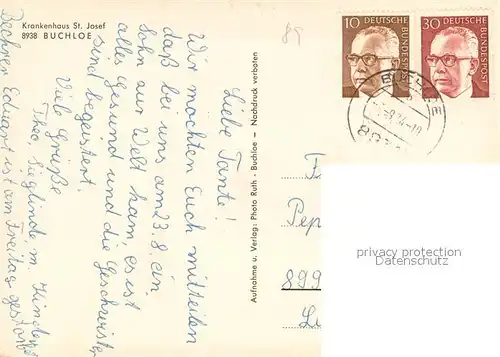 Krankenhaus St. Josef
8938 BUCHLOE
89
Liebe Tante!
Wir möchten Euch mitteilen
daß bei uns am 23.8. ein
Sohn zur Welt kam, es ist
alles Gesund und die Geschwister
sind begeistert.
Viele Grüße
Theo, Sieglinde m. Kinder
Eduart ist am Freitag gestorben
Aufnahme u. Verlag: Photo Ruth - Buchloe — Nachdruck verboten
10 DEUTSCHE BUNDESPOST
30 DEUTSCHE BUNDESPOST
BUCHLOE
Pep
899
privacy protection
Datenschutz